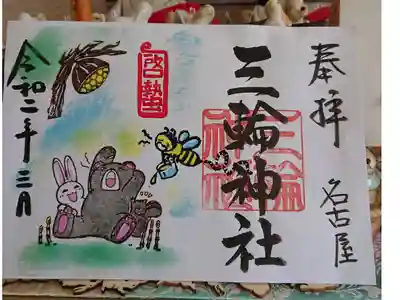 奉拝
名古屋
三輪神社
三輪
神社
啓蟄
令和二年三月